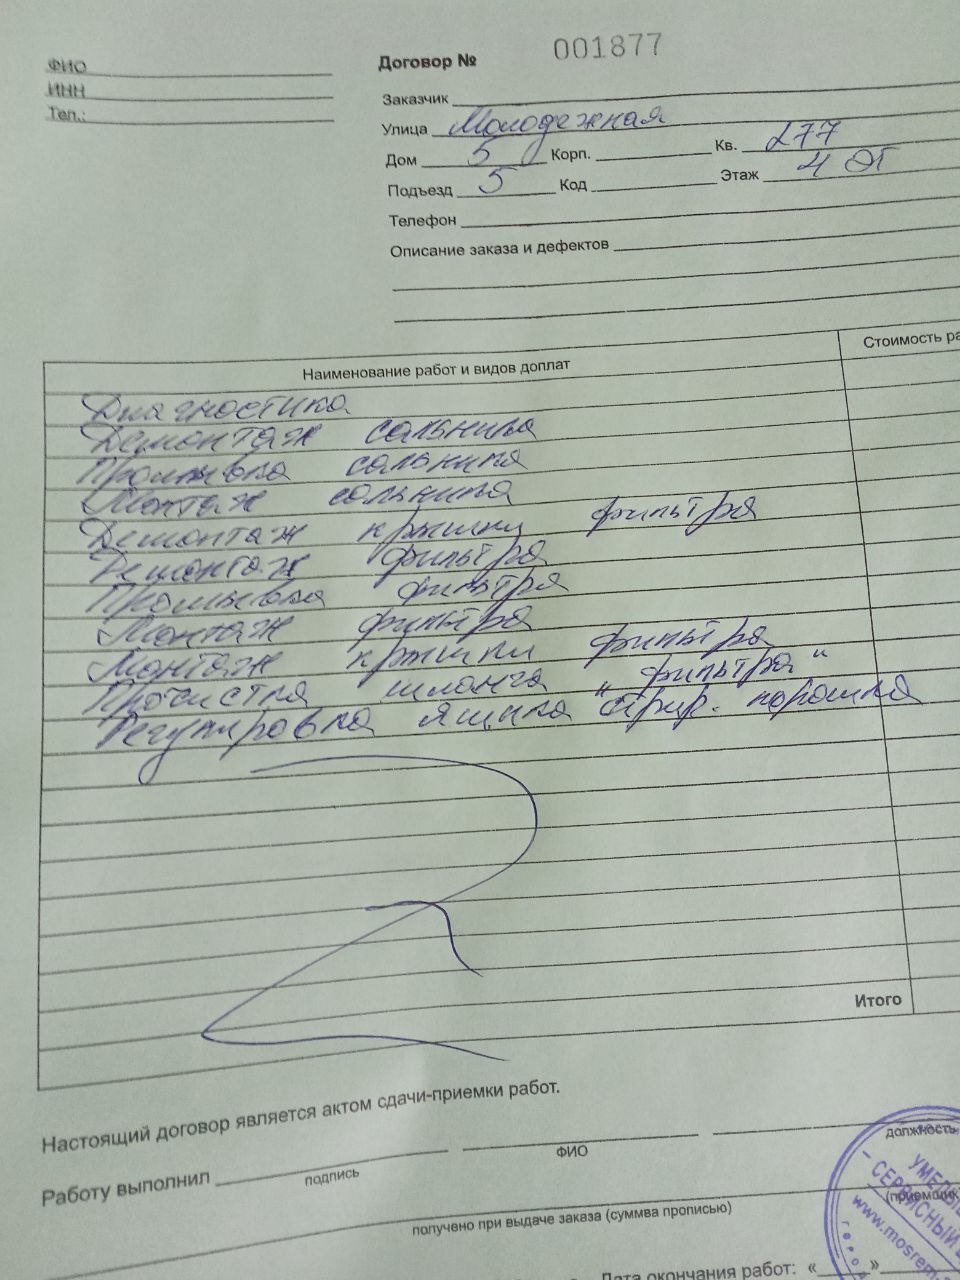 ФИО
ИНН
Тел.:
Договор № 001877
Заказчик
Улица Молодежная
Дом 5 Корп. Кв. 277
Подъезд 5 Код Этаж 4 эт
Телефон
Описание заказа и дефектов
Наименование работ и видов доплат Стоимость ра
Диагностика
Демонтаж сальника
Промывка сальника
Монтаж сальника
Демонтаж крышки фильтра
Демонтаж фильтра
Промывка фильтра
Монтаж фильтра
Монтаж крышки фильтра
Прочистка шланга "фильтра"
Регулировка ящика порошка
Итого
Настоящий договор является актом сдачи-приемки работ.
Работу выполнил
подпись ФИО должность
(приемщик
получено при выдаче заказа (суммва прописью)
Дата окончания работ: « »
УМЕЛЬ
СЕРВИСНЫЙ
www.mosrem